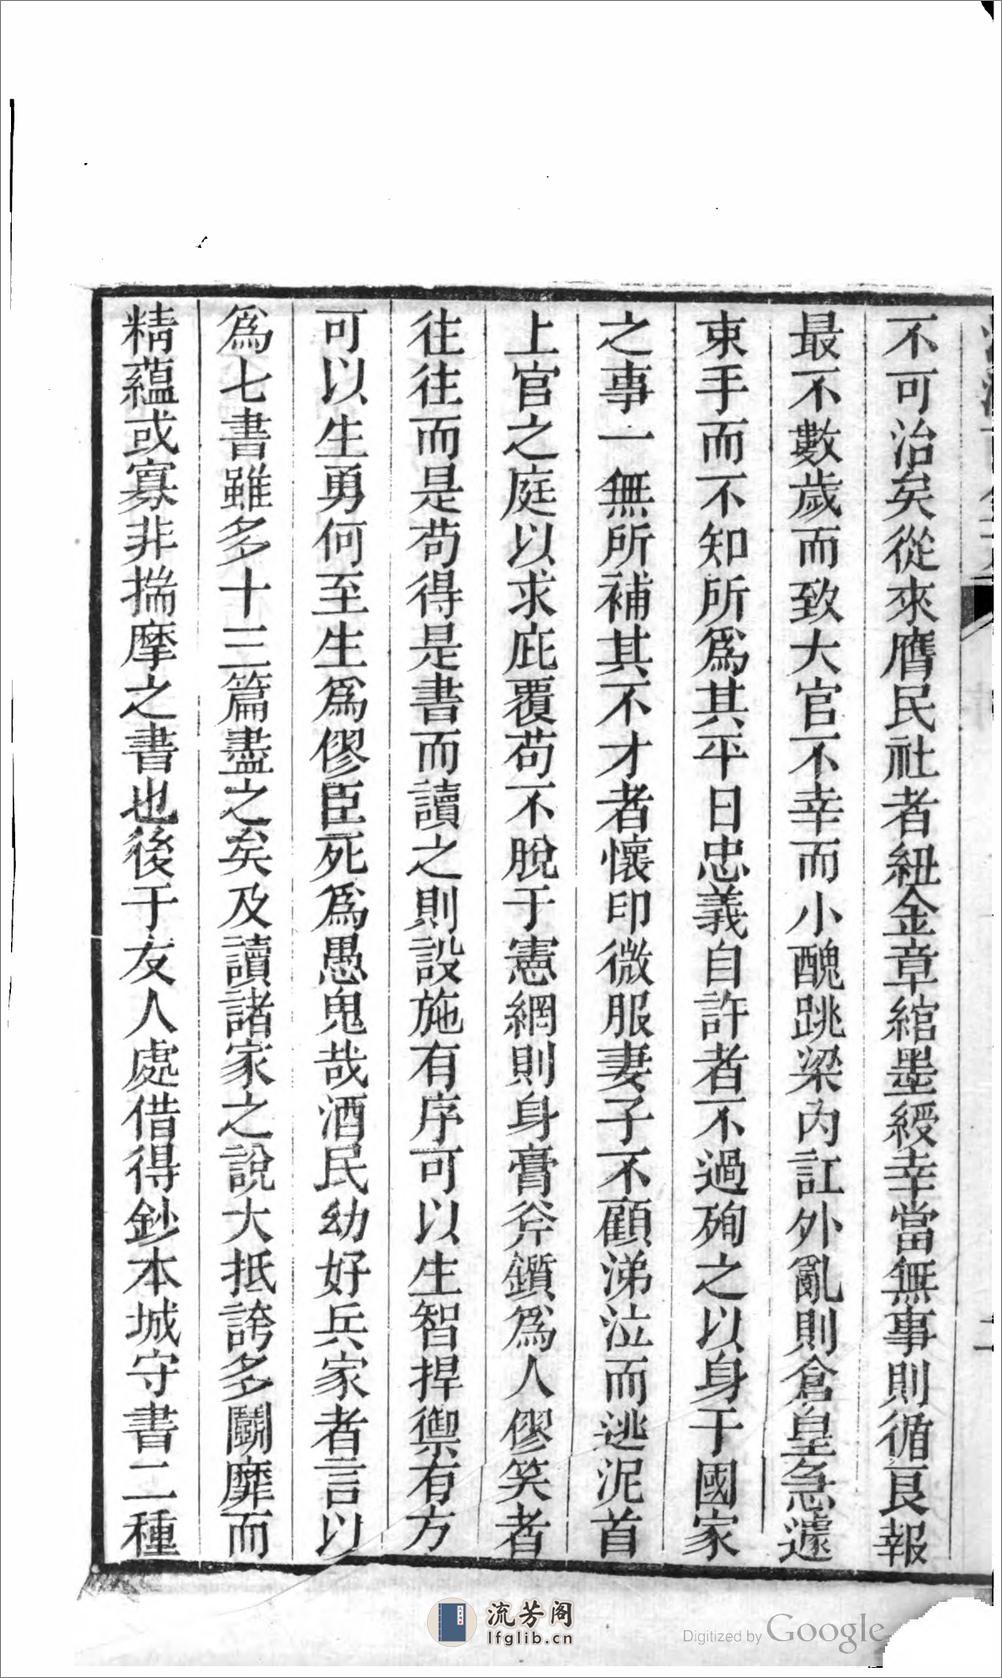 不可治矣從來膺民社者紐金章綰墨綬幸當無事則循良報
最不數歲而致大官不幸而小醜跳梁內訌外亂則倉皇急遽
束手而不知所爲其平日忠義自許者不過殉之以身于國家
之事一無所補其不才者懷印微服妻子不顧涕泣而逃泥首
上官之庭以求庇覆苟不脫于憲網則身膏斧鑕爲人僇笑者
往往而是苟得是書而讀之則設施有序可以生智捍禦有方
可以生勇何至生爲僇臣死爲愚鬼哉酒民幼好兵家者言以
爲七書雖多十三篇盡之矣及讀諸家之說大抵誇多鬭靡而
精蘊或寡非揣摩之書也後于友人處借得鈔本城守書二種
流芳阁
lfglib.cn
Digitized by Google